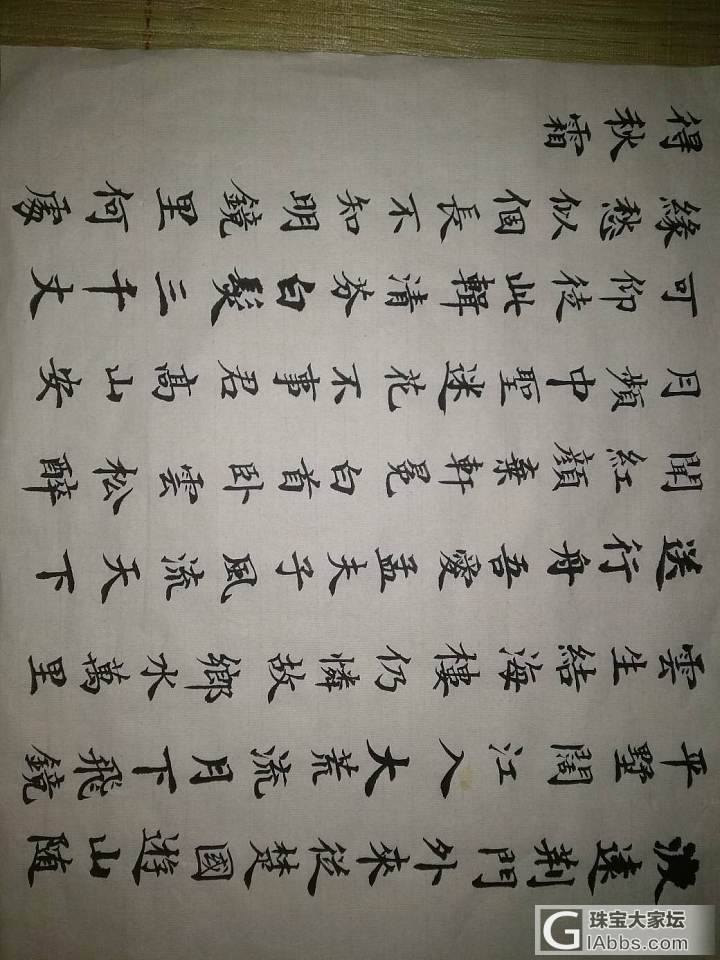 渡遠荆門外來從楚國遊山隨
平墅闊江入大荒流月下飛鏡
雲生結海樓仍憐故鄉水萬里
送行舟吾愛孟夫子風流天下
聞紅顔棄軒冕白首卧雲松醉
月頻中聖迷花不事君高山安
可仰徒此輯清芬白髮三千丈
緣愁似個長不知明鏡里何處
得秋霜
珠宝大家坛
GIAbbs.com